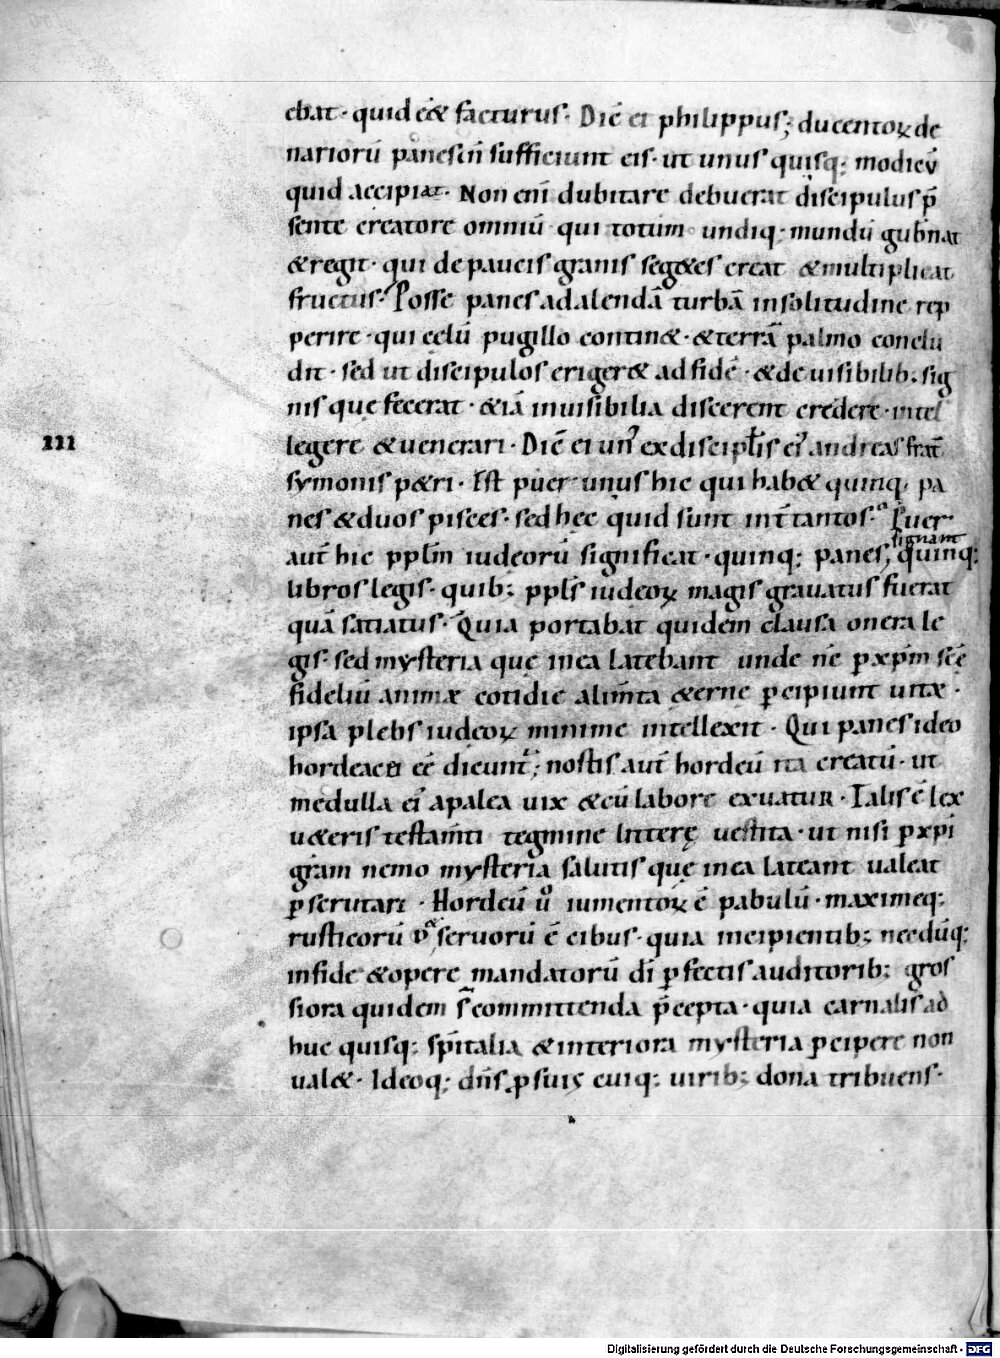 ebat · quid eēt facturus · Dic̄ ei philippus; ducentoꝝ de
nariorū panes n̄ sufficiunt eis · ut unusquisq; modicū
quid accipiat · Non eni dubitare debuerat discipulus p̄
sente creatore omniū qui totum undiq; mundū gub̄nat
& regit · qui de paucis granis seg&es creat & multiplicat
fructus · Posse panes ad alendā turbā in solitudine rep
perire · qui cęlū pugillo contin& · & terrā palmo conclu
dit · sed ut discipulos eriger& ad fidē · & de uisibilib; sig
nis que fecerat · & iā inuisibilia discerent credere · intel
III
legere & uenerari · Dic̄ ei un᾽ ex discipl̄is ei᾽ andreas frat̄
symonis p&ri · Est puer unus hic qui hab& quinq; pa
nes & duos pisces · sed hęc quid sunt int̄ tantos · Puer
signant
aut̄ hic ppl̄m iudęorū significat · quinq; panes, quinq;
libros legis · quib; ppl̄s iudęoꝝ magis grauatus fuerat
quā satiatus · Quia portabat quidem clausa onera le
gis · sed mysteria quę in ea latebant unde nc̄ p xp̄m sc̄ę
fideliū animæ cotidie alim̄ta &ernę ꝑcipiunt uitæ ·
ipsa plebs iudęoꝝ minime intellexit · Qui panes ideo
hordeacei eē dicunt᾽; nostis aut̄ hordeū ita creatū · ut
medulla ei᾽ a palea uix & cū labore exuatur · Talis ē lex
u&eris testam̄ti tegmine litterę uestita · ut nisi p xp̄i
gr̄am nemo mysteria salutis quę in ea lateant ualeat
ꝑscrutari · Hordeū u᷎ iumentoꝝ ē pabulū · maximeq;
rusticorū seruorū ē cibus · quia incipientib; necdūq;
in fide & opere mandatorū dī ꝑfectis auditorib; gros
siora quidem s̄ committenda p̄cepta · quia carnalis ad
huc quisq; sp̄italia & interiora mysteria ꝑcipere non
ual& · Ideoq; dn̄s p suis cuiq; uirib; dona tribuens ·
Digitalisierung gefördert durch die Deutsche Forschungsgemeinschaft - DFG